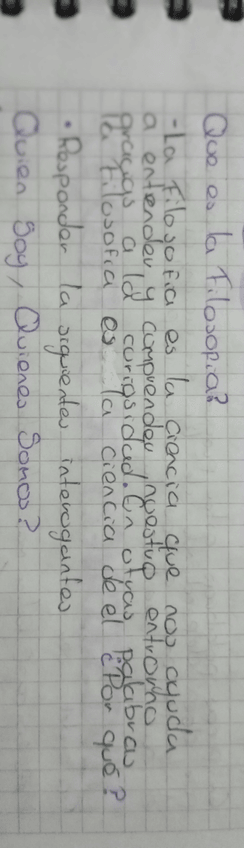 Que es la Filosofia?
-La Filosofia es la ciencia que nos ayuda
a entender y comprender nuestro entrorno
gracias a la curiosidad. En otras palabras
la Filosofia es la ciencia de el ¿Por qué?
• Responder la siguientes interogantes
Quien Soy, Quienes Somos?